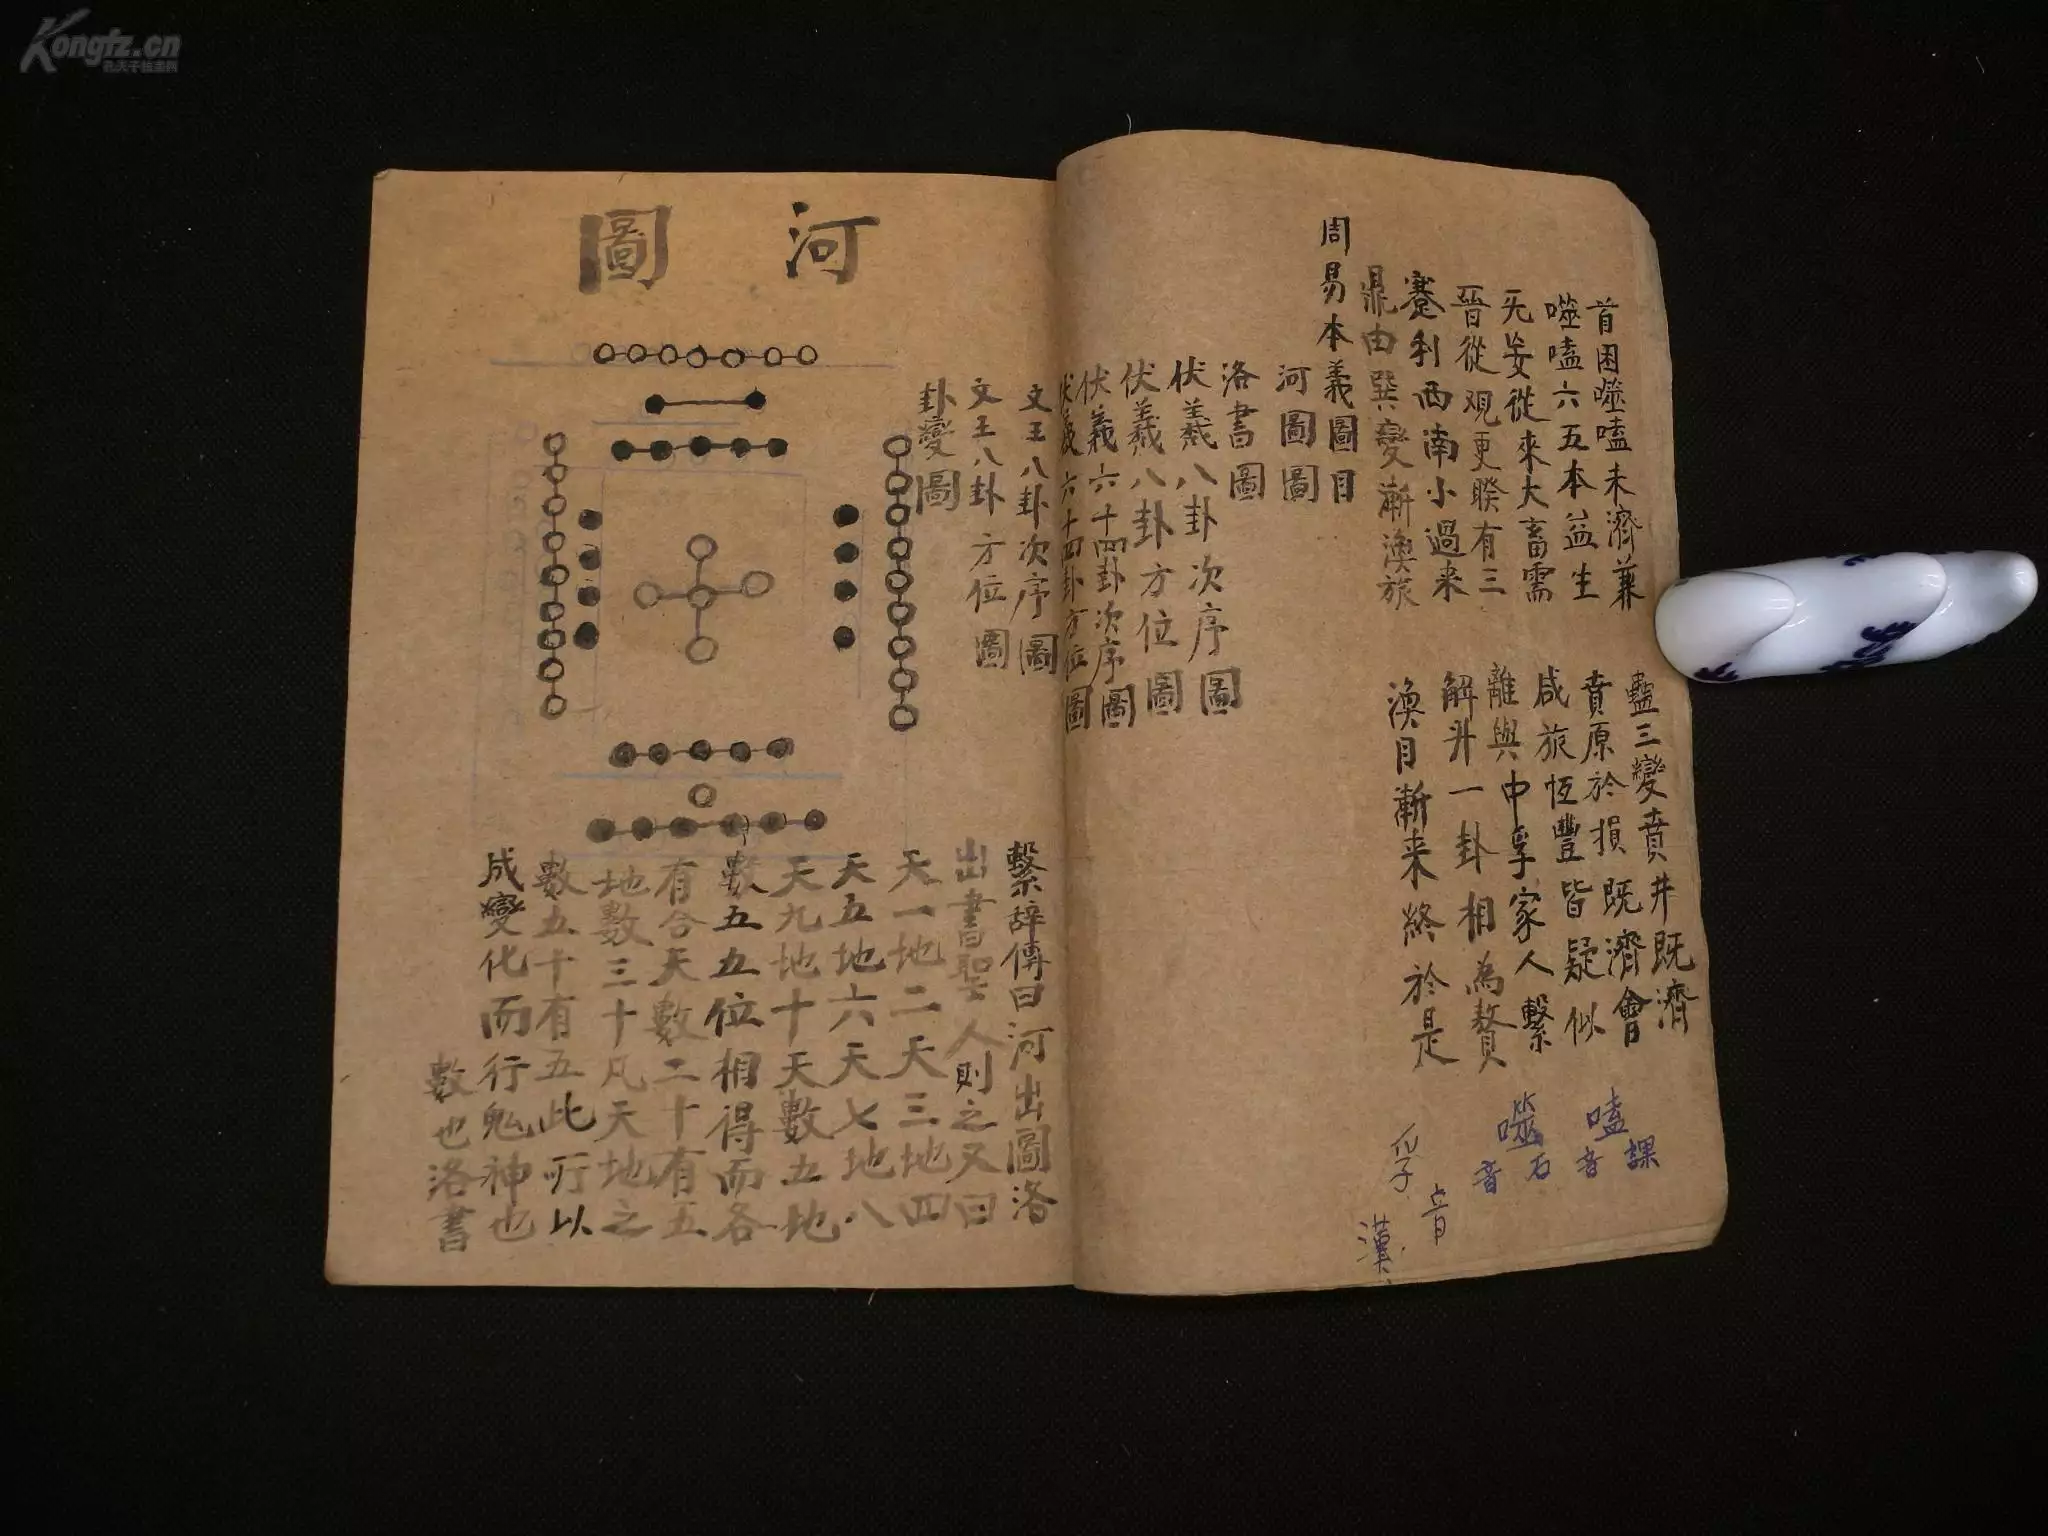 首困噬嗑未濟兼　蠱三變賁井既濟
噬嗑六五本益生　賁原於損既濟會
无妄從來大畜需　咸旅恆豐皆疑似
晉從观更睽有三　離與中孚家人繫
蹇利西南小過来　解升一卦相為贅
鼎由巽變漸渙旅　渙目漸来終於是
周易本義圖目
河圖圖
洛書圖
伏羲八卦次序圖
伏羲八卦方位圖
伏羲六十四卦次序圖
伏羲六十四卦方位圖
文王八卦次序圖
文王八卦方位圖
卦變圖
嗑音課
噬音石
孚音
漢
河圖
繫辭傳曰河出圖洛
出書聖人則之又曰
天一地二天三地四
天五地六天七地八
天九地十天數五地
數五五位相得而各
有合天數二十有五
地數三十凡天地之
數五十有五此所以
成變化而行鬼神也
數也洛書
Kongfz.cn